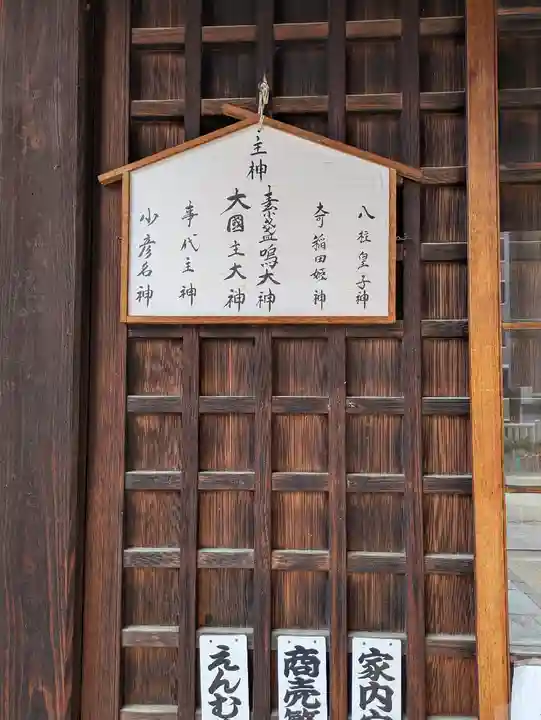 主神
八柱皇子神
奇稲田姫神
素盞鳴大神
大國主大神
事代主神
少彦名神
家内
商売
えんむ